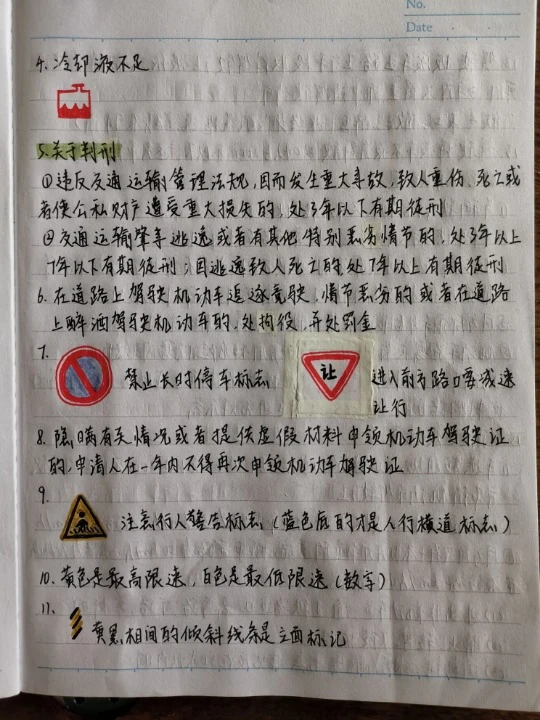 No.
Date
4. 冷却液不足
5. 关于判刑
①违反交通运输管理法规,因而发生重大事故,致人重伤、死亡或
者使公私财产遭受重大损失的,处3年以下有期徒刑
②交通运输肇事逃逸或者有其他特别恶劣情节的,处3年以上
7年以下有期徒刑;因逃逸致人死亡的,处7年以上有期徒刑
6. 在道路上驾驶机动车追逐竞驶,情节恶劣的或者在道路
上醉酒驾驶机动车的,处拘役,并处罚金
7. 禁止长时停车标志 让 进入前方路口要减速
让行
8. 隐瞒有关情况或者提供虚假材料申领机动车驾驶证
的,申请人在一年内不得再次申领机动车驾驶证
9. 注意行人警告标志(蓝色底的才是人行横道标志)
10. 黄色是最高限速,白色是最低限速(数字)
11. 黄黑相间的倾斜线条是立面标记